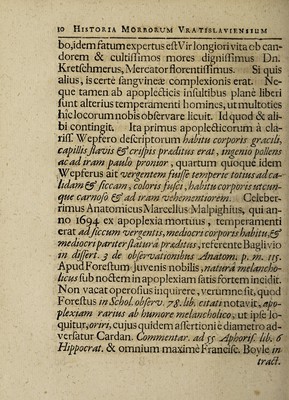 10 HISTORIA MORBORUM VRATISLAVIENSIUM
bo, idem fatum expertus est Vir longiori vita ob can-
dorem & cultissimos mores dignissimus Dn.
Kretschmerus, Mercator florentissimus. Si quis
alius, is certè sangvineæ complexionis erat. Ne-
que tamen ab apoplecticis insultibus planè liberi
sunt alterius temperamenti homines, ut multoties
hîc locorum nobis observare licuit. Id quod & ali-
bi contingit. Ita primus apoplecticorum à cla-
riss. Wepfero descriptorum habitu corporis gracili,
capillis flavis & crispis præditus erat, ingenio pollens
ac ad iram paulo pronior, quartum quoque idem
Wepferus ait vergentem fuisse temperie totius ad ca-
lidam & siccam, coloris fusci, habitu corporis utcun-
que carnoso & ad iram vehementiorem. Celeber-
rimus Anatomicus Marcellus Malpighius, qui an-
no 1694 ex apoplexia mortuus, temperamenti
erat ad siccum vergentis, mediocri corporis habitu, &
mediocri pariter statura præditus, referente Baglivio
in dissert. 3 de observationibus Anatom. p. m. 115.
Apud Forestum Juvenis nobilis, natura melancho-
licus sub noctem in apoplexiam satis fortem incidit.
Non vacat operosius inquirere, verumne sit, quod
Forestus in Schol. observ. 78. lib. citati notavit, apo-
plexiam rarius ab humore melancholico, ut ipse lo-
quitur, oriri, cujus quidem assertioni è diametro ad-
versatur Cardan. Commentar. ad 55 Aphoris. lib. 6
Hippocrat. & omnium maximè Francisc. Boyle in
tract.